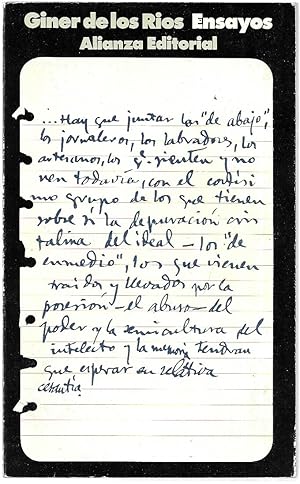 Giner de los Rios Ensayos
Alianza Editorial
...Hay que juntar los "de abajo",
los jornaleros, los labradores, los
artesanos, los q. sienten y no
ven todavía, con el cortísi
mo grupo de los que tienen
sobre sí la depuración cris
talina del ideal — los "de
enmedio", los que vienen
traidos y llevados por la
posesión — el abuso — del
poder y la semicultura del
intelecto y la memoria tendrán
que esperar en relativa
cesantía